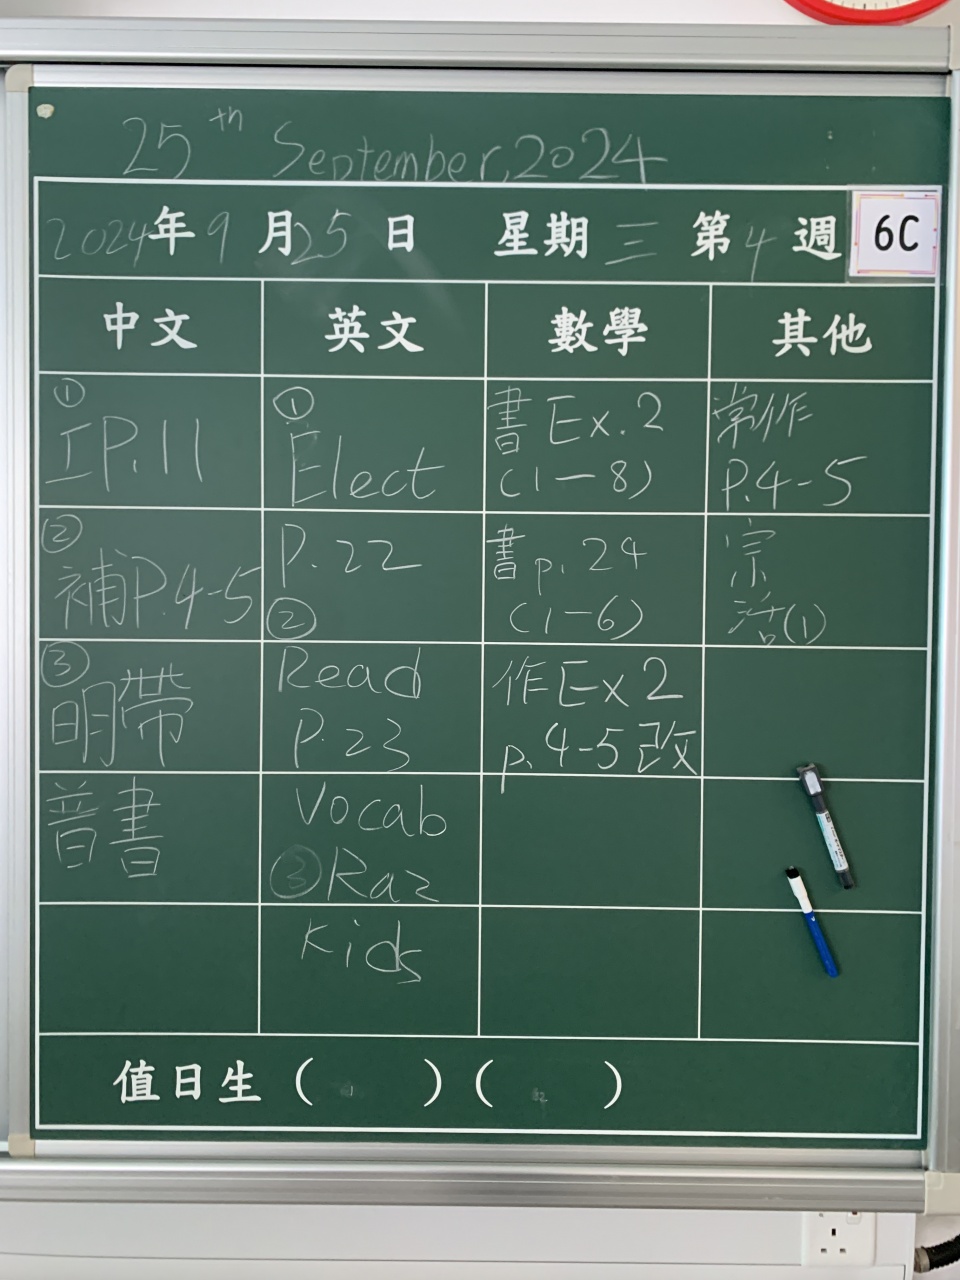 25th September, 2024
2024年9月25日 星期三 第4週 6C
中文 英文 數學 其他
①
工P.11
②
補P.4-5
③
明帶
普書
①
Elect
P.22
②
Read
P.23
Vocab
③Raz
Kids
書Ex.2
(1-8)
書p.24
(1-6)
作Ex2
p.4-5改
常作
P.4-5
宗
活(1)
值日生( )( )